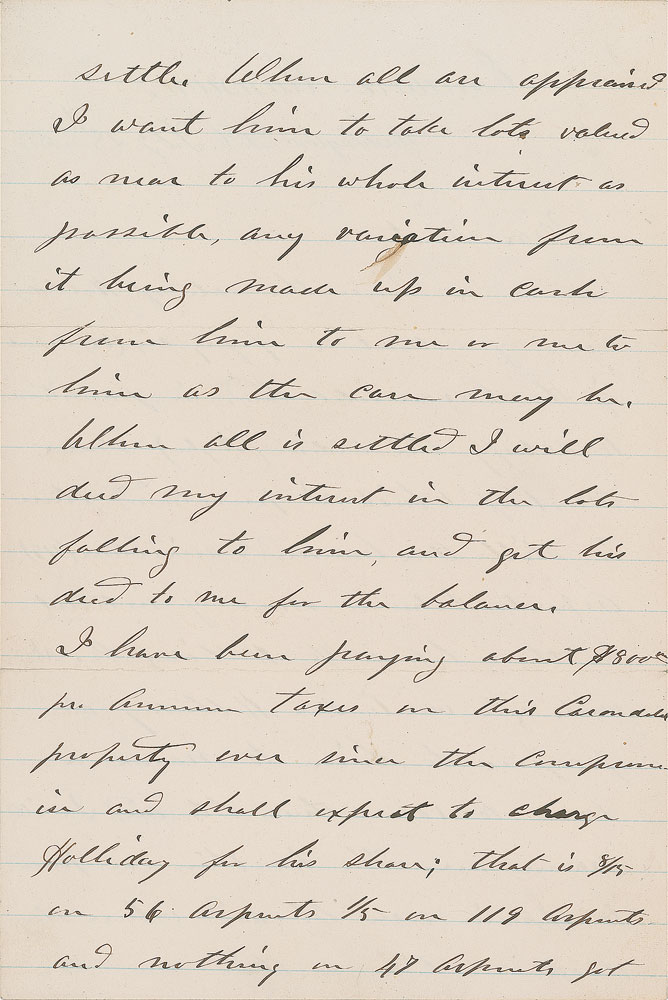 settle. When all are appraised
I want him to take lots valued
as near to his whole interest as
possible, any variation from
it being made up in cash
from him to me or me to
him as the case may be.
When all is settled I will
deed my interest in the lots
falling to him, and get his
deed to me for the balance.
I have been paying about $800 00
pr. Annum taxes on this Carondelet
property ever since the comprom-
ise and shall expect to charge
Holliday for his share; that is 8/15
on 56 Arpents 1/5 on 119 Arpents
and nothing on 47 Arpents got